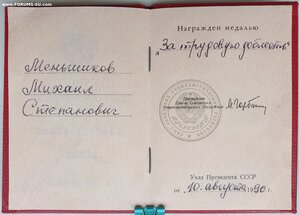 www.FORUMS-SU.com
Меньшиков
Михаил
Степанович
Награжден медалью
„За трудовую доблесть“
Президент
Союза Советских
Социалистических Республик
М. Горбачев
Указ Президента СССР
от „10 августа 1990 г.